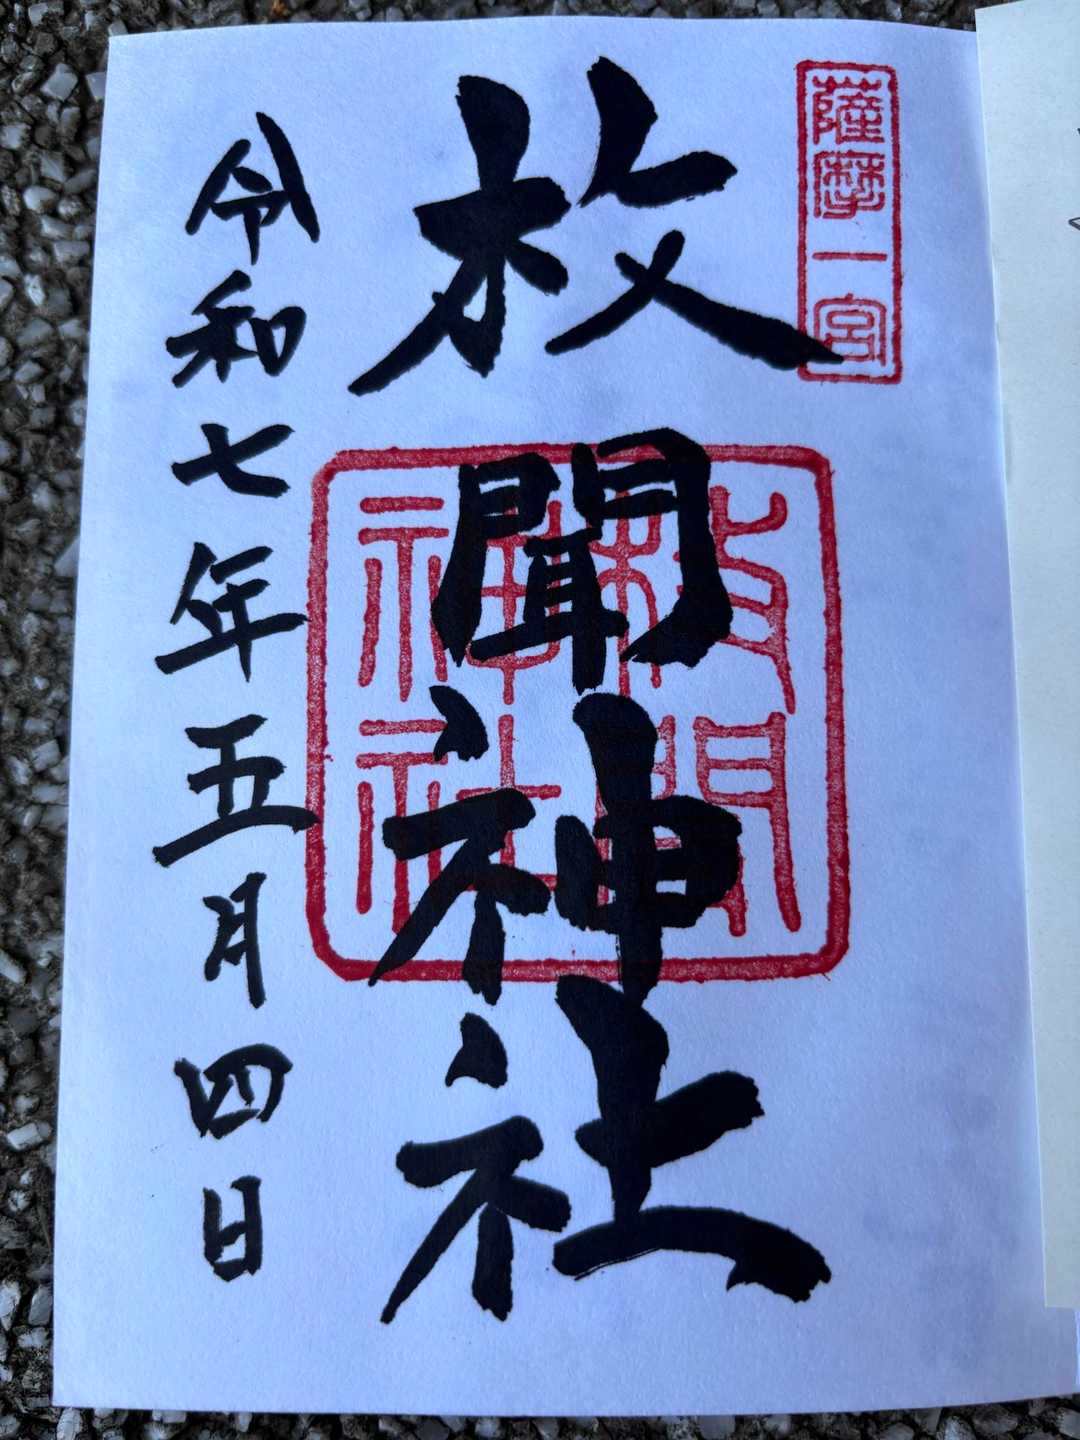 薩摩一宮
枚聞神社
枚聞
神社
令和七年五月四日